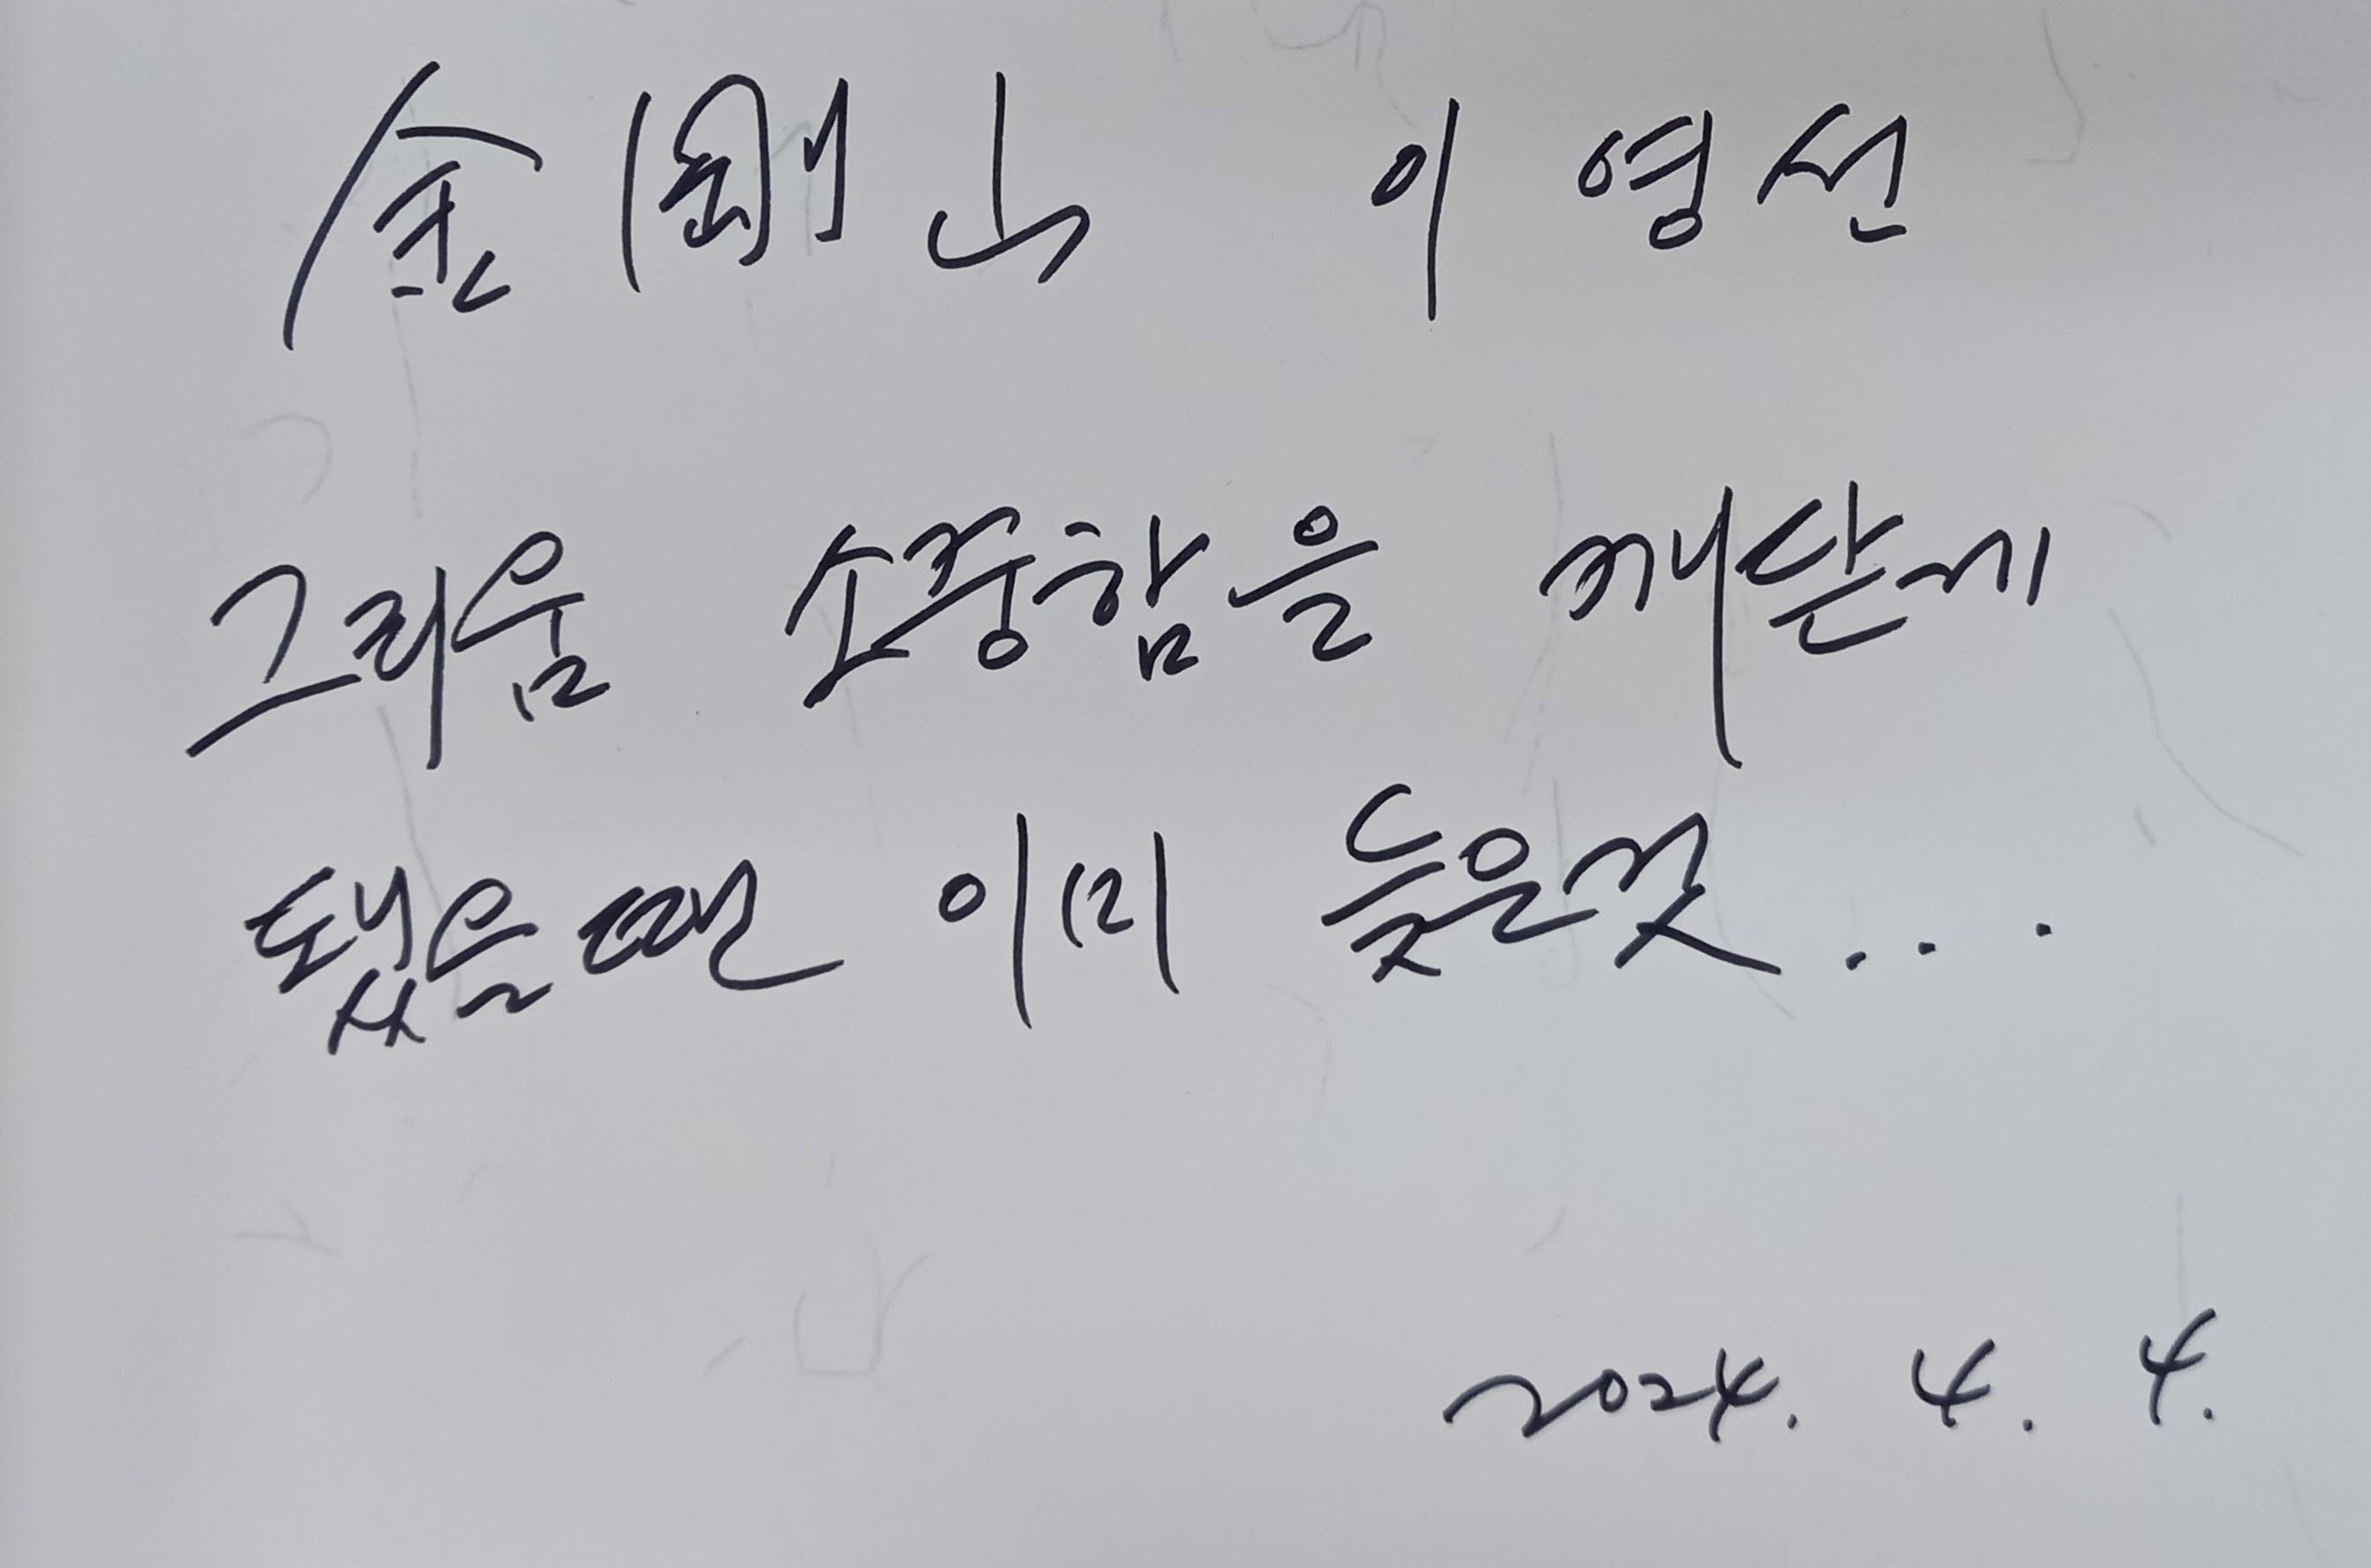 金剛山 이영선
그리움 소중함을 깨닫게
됐을땐 이미 늦은것...
2024. 4. 4.